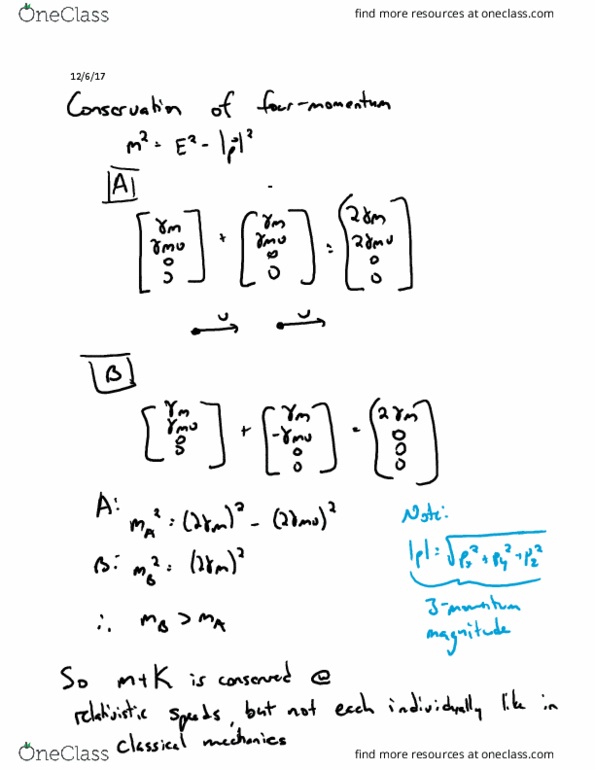 OneClass find more resources at oneclass.com
12/6/17
Conservation of four-momentum
m² = E² - |p⃗|²
A
[γm γmv 0 0] + [γm γmv 0 0] = [2γm 2γmv 0 0]
v v
B
[γm γmv 0 0] + [γm -γmv 0 0] = [2γm 0 0 0]
A: m_A² = (2γm)² - (2γmv)²
Note:
B: m_B² = (2γm)²
|p| = √(p_x² + p_y² + p_z²)
∴ m_B > m_A
3-momentum
magnitude
So m+K is conserved @
relativistic speeds, but not each individually like in
classical mechanics
OneClass find more resources at oneclass.com